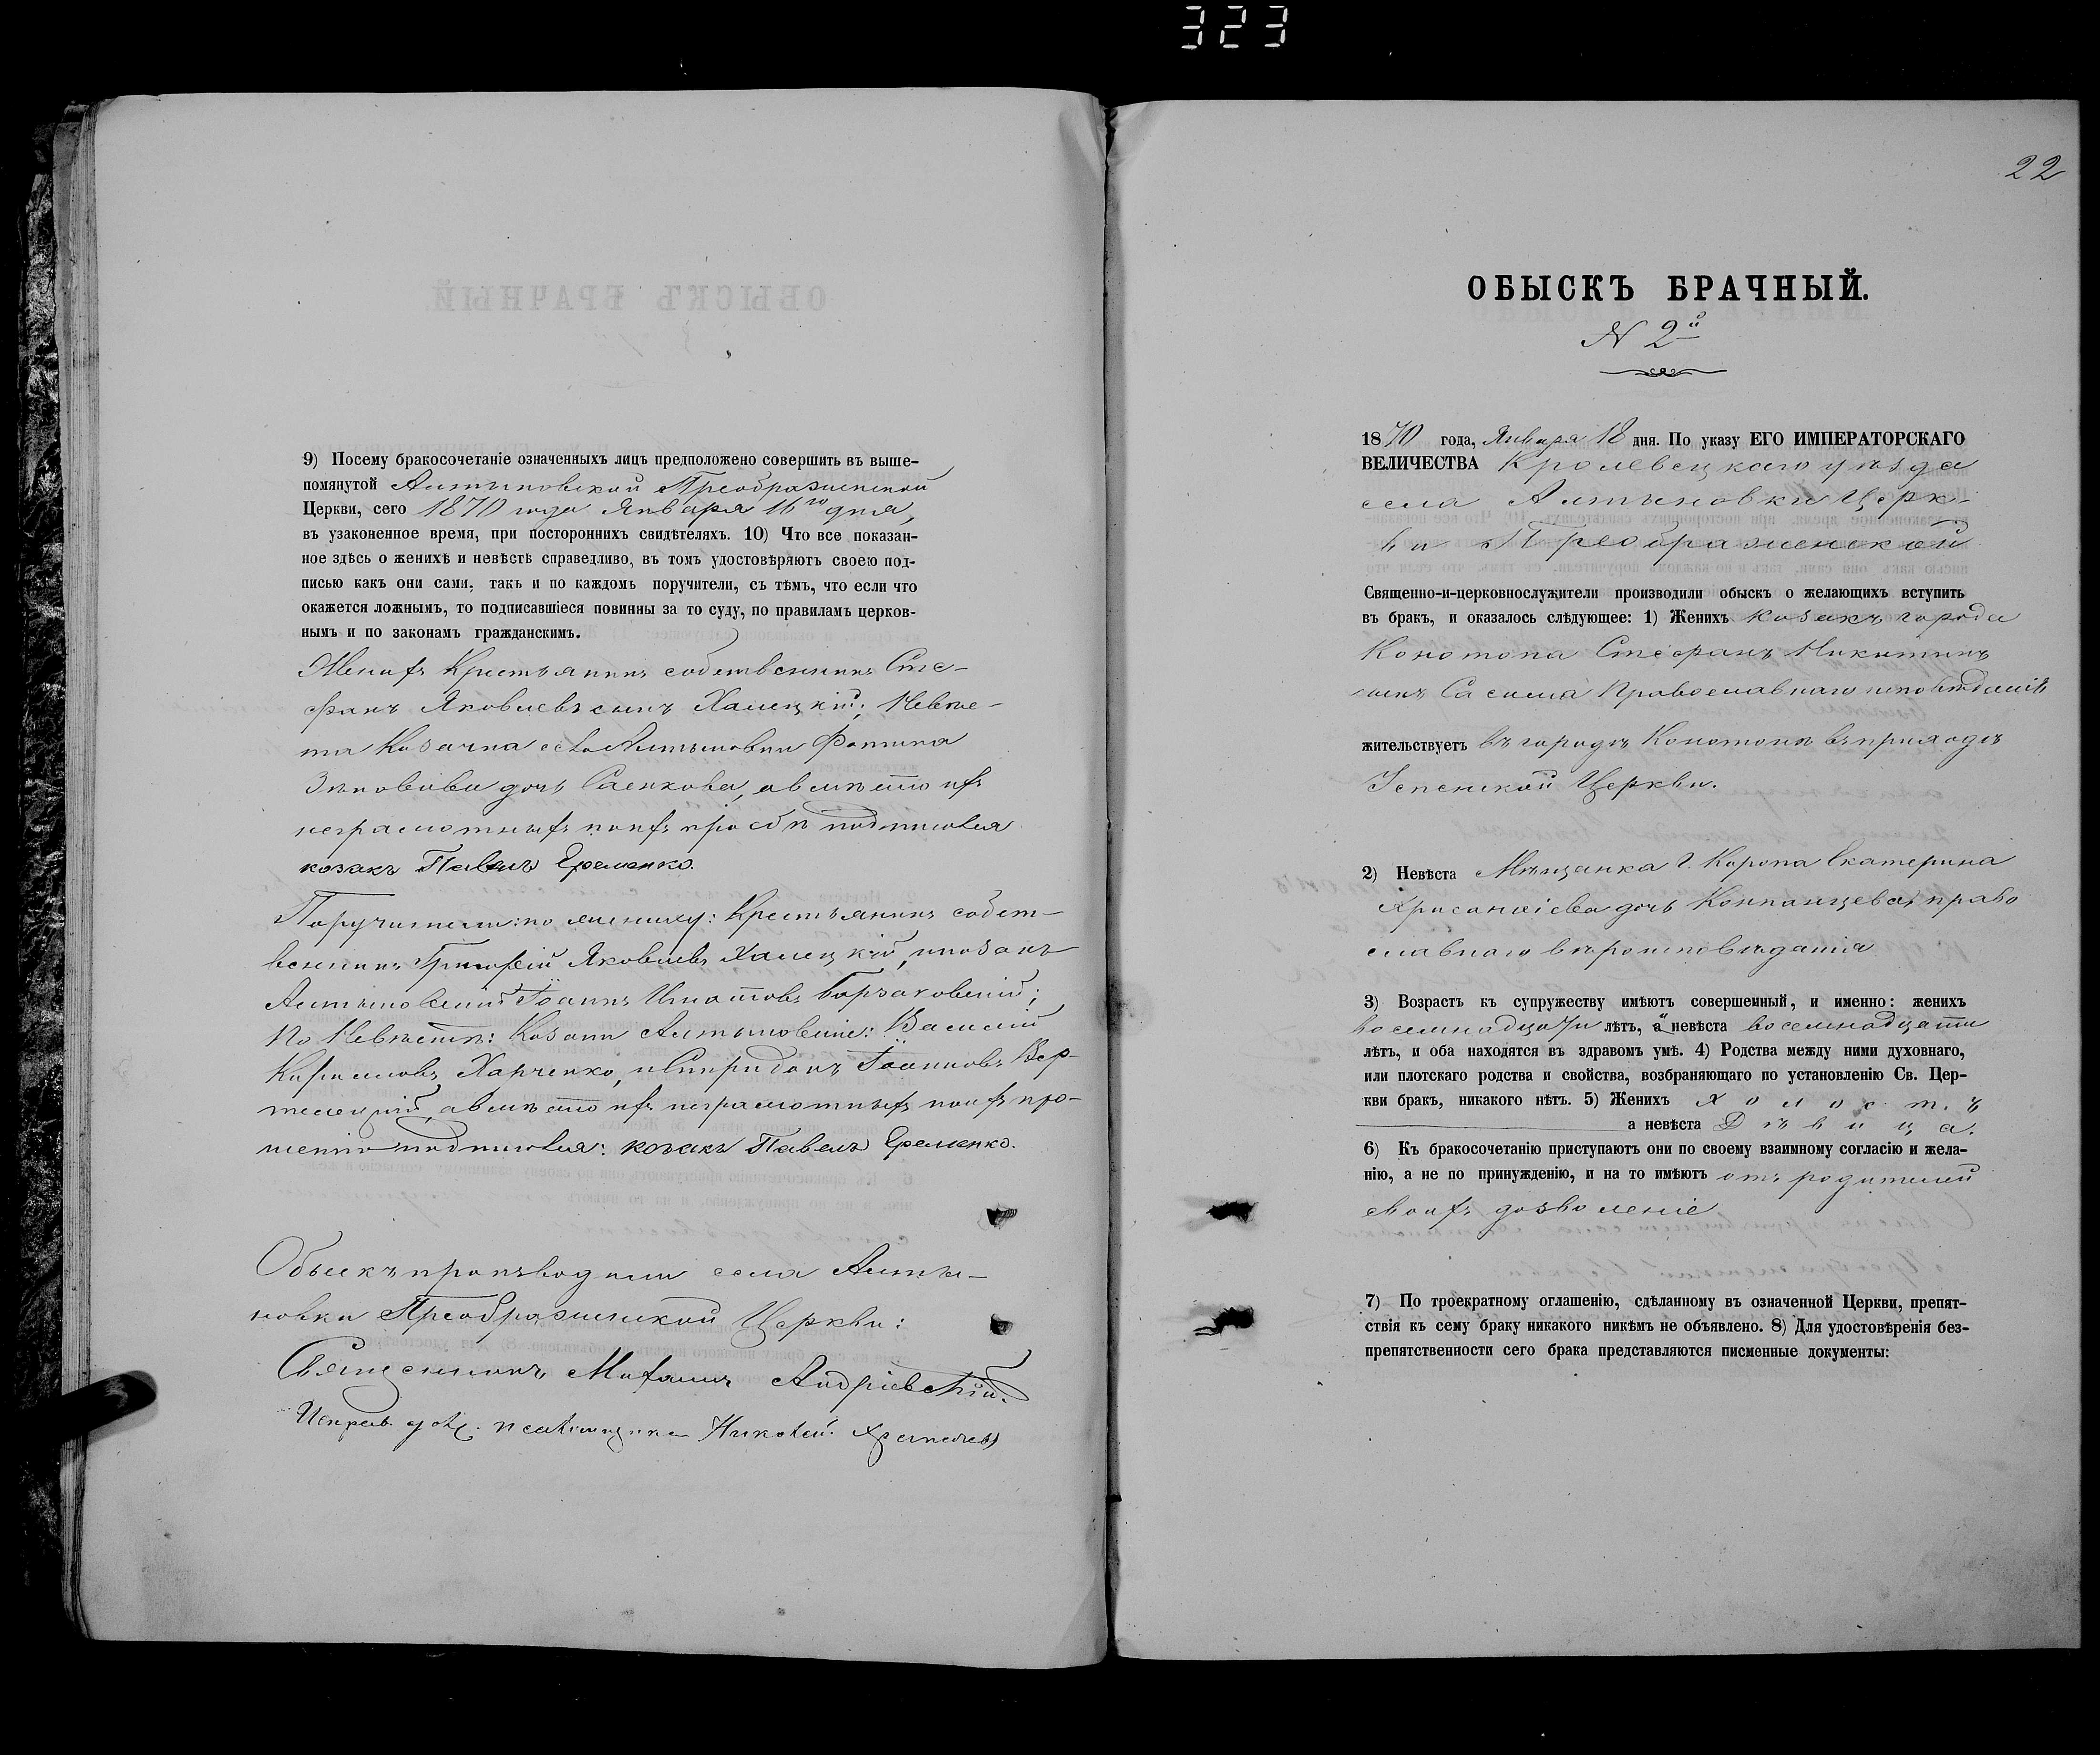 323
9) Посему бракосочетаніе означенныхъ лицъ предположено совершить въ выше-
помянутой Алтыновской Преображенской
Церкви, сего 1870 года Января 16го дня,
въ узаконенное время, при постороннихъ свидѣтеляхъ. 10) Что все показан-
ное здѣсь о женихѣ и невѣстѣ справедливо, въ томъ удостовѣряютъ своею под-
писью какъ они сами, такъ и по каждомъ поручители, съ тѣмъ, что если что
окажется ложнымъ, то подписавшіеся повинны за то суду, по правиламъ церков-
нымъ и по законамъ гражданскимъ.
Женихъ Крестьянинъ собственникъ Сте-
фанъ Яковлевъ сынъ Халецкій; Невѣс-
та Козачка с. Алтыновки Фотина
Зѣновова дочь Саенкова, а вмѣсто ихъ
неграмотныхъ по ихъ просьбѣ подписался
козакъ Павелъ Еременко.
Поручители: по жениху: Крестьянинъ собст-
венникъ Григорій Яковлевъ Халецкій, и козакъ
Алтыновскій Іоаннъ Игнатовъ Борзаковскій;
По Невѣстѣ: Козаки Алтыновскіе: Василій
Кирилловъ Харченко, и Спиридонъ Іоанновъ Вер-
телецкій, а вмѣсто ихъ неграмотныхъ по ихъ про-
шенію подписался: козакъ Павелъ Еременко.
Обыскъ производили села Алты-
новки Преображенской Церкви:
Священникъ Михаилъ Андріевскій.
Исправ. долж. псаломщика Николай
22
ОБЫСКЪ БРАЧНЫЙ.
N 2й
1870 года, Января 18 дня. По указу ЕГО ИМПЕРАТОРСКАГО
ВЕЛИЧЕСТВА Кролевецкаго уѣзда
села Алтыновки Церк-
ви Преображенской
Священно-и-церковнослужители производили обыскъ о желающихъ вступить
въ бракъ, и оказалось слѣдующее: 1) Женихъ Козакъ города
Конотопа Стефанъ Никитинъ
сынъ Православнаго исповѣданія
жительствуетъ въ городѣ Конотопѣ въ приходѣ
Успенской Церкви.
2) Невѣста Мѣщанка г. Коропа Екатерина
Хрисанѳіева дочь Компанцева, право
славнаго вѣроисповѣданія
3) Возрастъ къ супружеству имѣютъ совершенный, и именно: женихъ
восемнадцати лѣтъ, а невѣста восемнадцати
лѣтъ, и оба находятся въ здравомъ умѣ. 4) Родства между ними духовнаго,
или плотскаго родства и свойства, возбраняющаго по установленію Св. Цер-
кви бракъ, никакого нѣтъ. 5) Женихъ Холостъ
а невѣста Дѣвица.
6) Къ бракосочетанію приступаютъ они по своему взаимному согласію и жела-
нію, а не по принужденію, и на то имѣютъ отъ родителей
своихъ дозволеніе
7) По троекратному оглашенію, сдѣланному въ означенной Церкви, препят-
ствія къ сему браку никакого никѣмъ не объявлено. 8) Для удостовѣренія без-
препятственности сего брака представляются писменные документы: